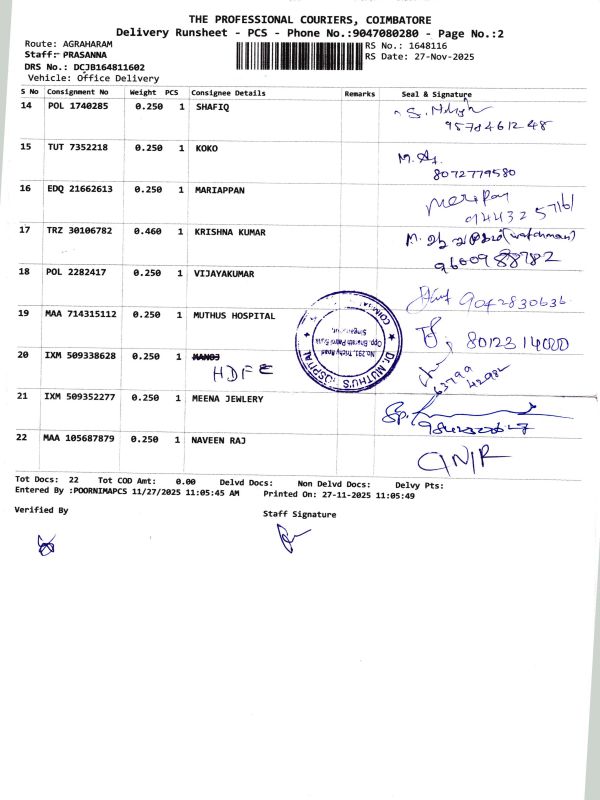 THE PROFESSIONAL COURIERS, COIMBATORE
Delivery Runsheet - PCS - Phone No.:9047080280 - Page No.:2
Route: AGRAHARAM
RS No.: 1648116
Staff:- PRASANNA
RS Date: 27-Nov-2025
DRS No.: DCJB164811602
Vehicle: Office Delivery
S No Consignment No Weight PCS Consignee Details Remarks Seal & Signature
14 POL 1740285 0.250 1 SHAFIQ
15 TUT 7352218 0.250 1 KOKO
8072779580
16 EDQ 21662613 0.250 1 MARIAPPAN
17 TRZ 30106782 0.460 1 KRISHNA KUMAR
(watchman)
18 POL 2282417 0.250 1 VIJAYAKUMAR
9042830636
19 MAA 714315112 0.250 1 MUTHUS HOSPITAL
Dr. MUTHU'S HOSPITAL
No.291, Trichy Road
20 IXM 509338628 0.250 1 MANOJ
HDFC
21 IXM 509352277 0.250 1 MEENA JEWLERY
22 MAA 105687879 0.250 1 NAVEEN RAJ
Tot Docs: 22 Tot COD Amt: 0.00 Delvd Docs: Non Delvd Docs: Delvy Pts:
Entered By :POORNIMAPCS 11/27/2025 11:05:45 AM Printed On: 27-11-2025 11:05:49
Verified By
Staff Signature